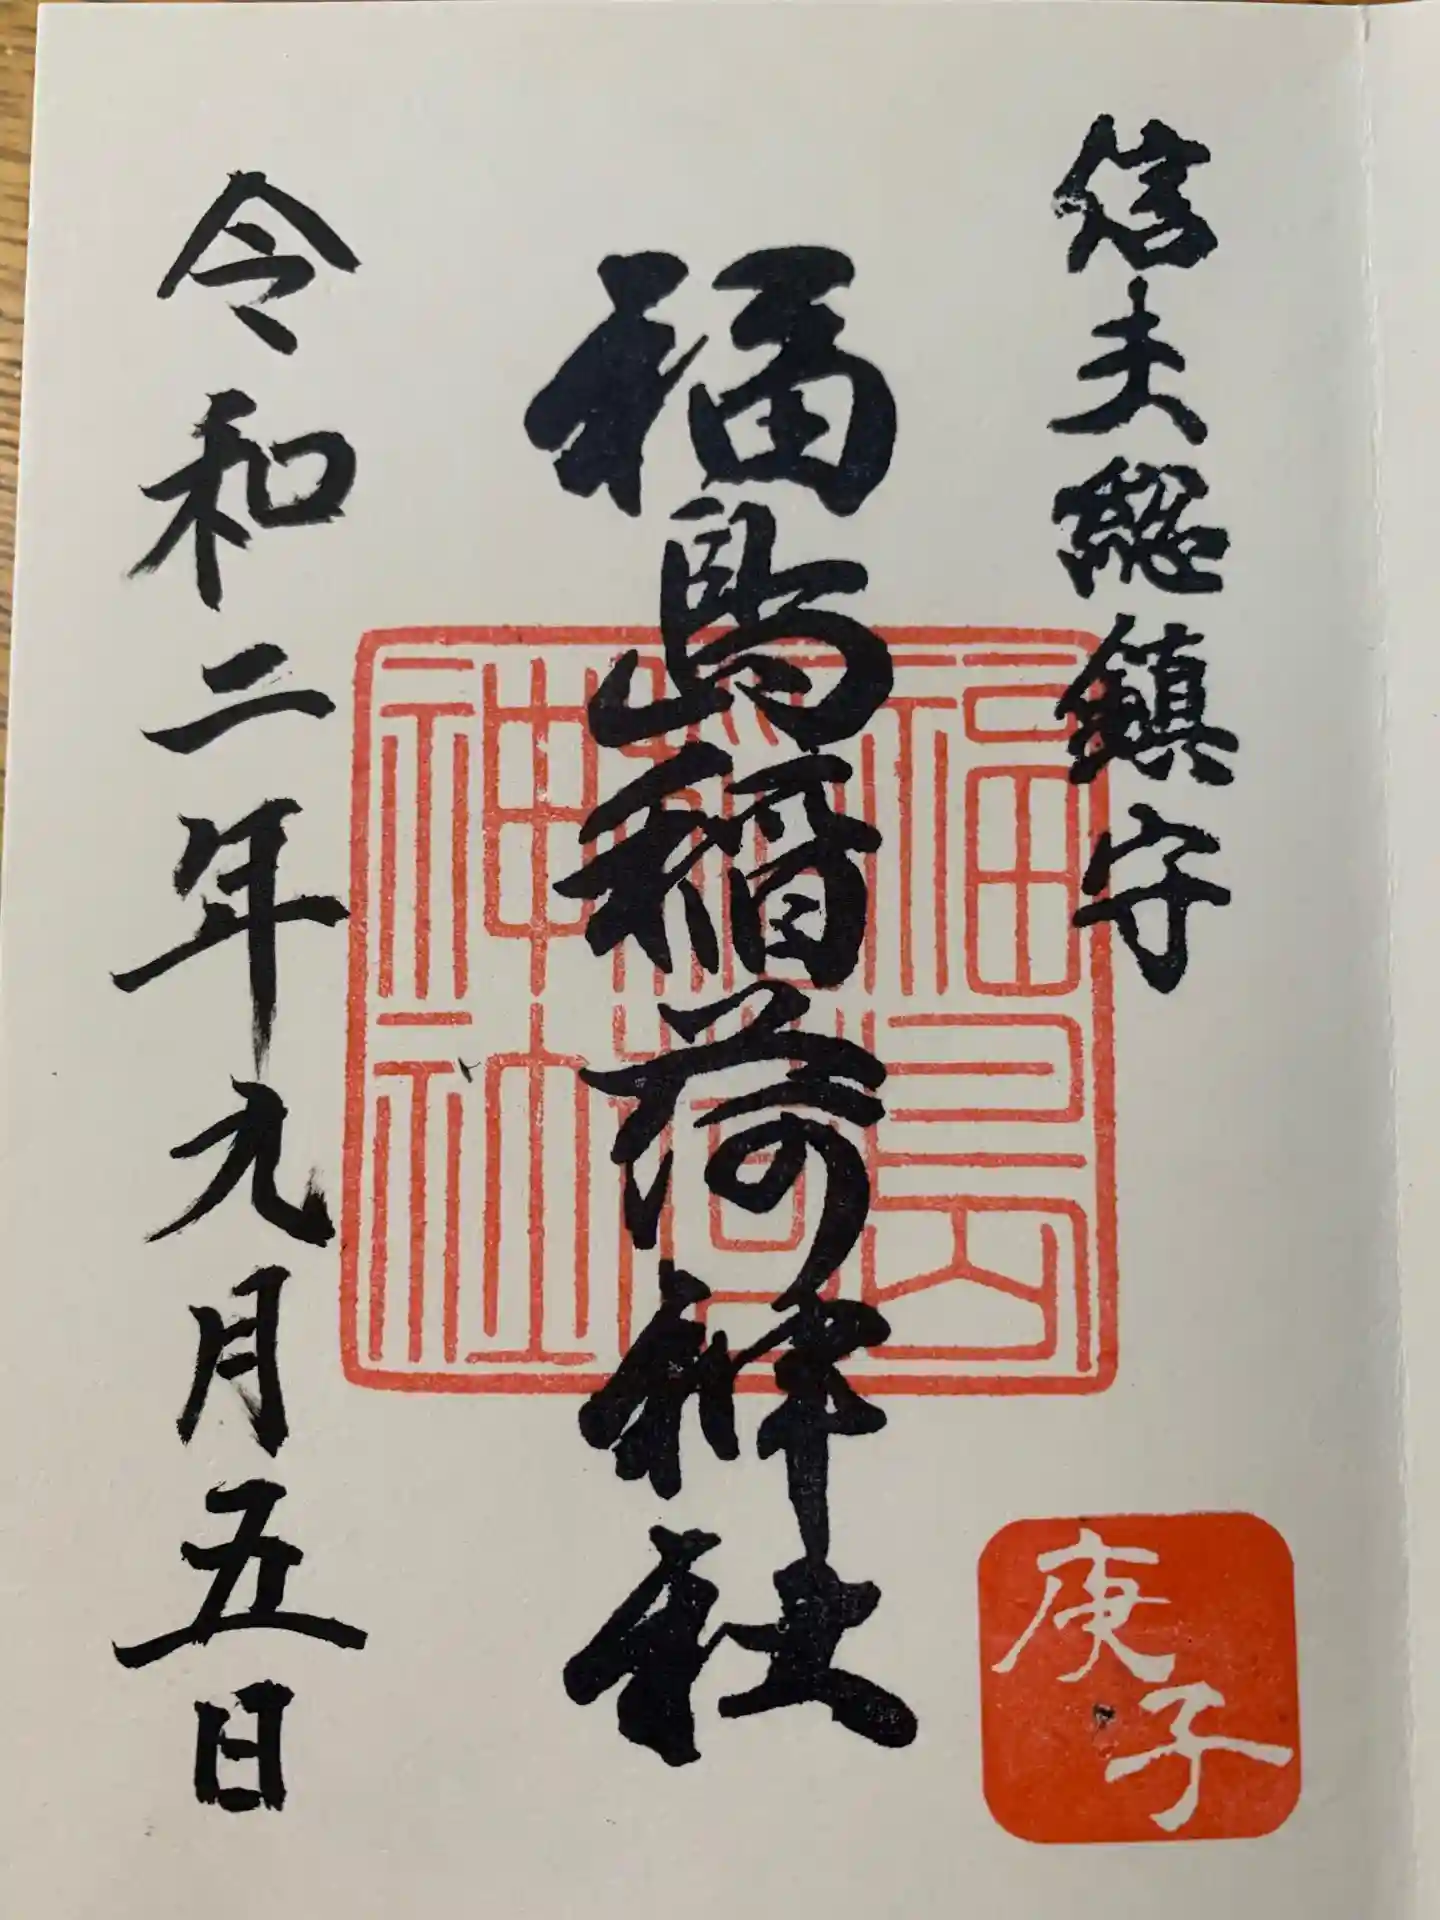 信夫総鎮守
福島稲荷神社
令和二年九月五日
福島稲荷神社
庚子